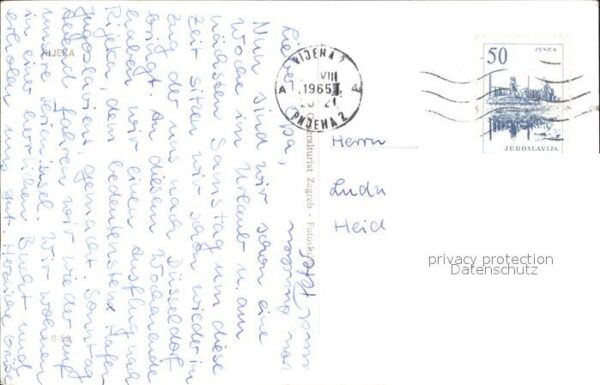 Lieber Opa,
Nun sind wir schon eine
Woche im Urlaub u. am
nächsten Samstag um diese
Zeit sitzen wir schon wieder im
Zug der uns nach Düsseldorf
bringt. An diesem Wochenende
haben wir einen Ausflug nach
Rijeka, dem bedeutendsten Hafen
Jugoslawiens gemacht. Sonntag
Abend fahren wir wieder auf
unsere Insel. Wir wohnen
in einer herrlichen Bucht und
erholen uns gut. Herzliche Grüße
RIJEKA
Zagreb
RIJEKA 2
VIII
1965
20-21
A
A
РИЈЕКА 2
50
ZENICA
JUGOSLAVIJA
Herrn
Heid
privacy protection
Datenschutz